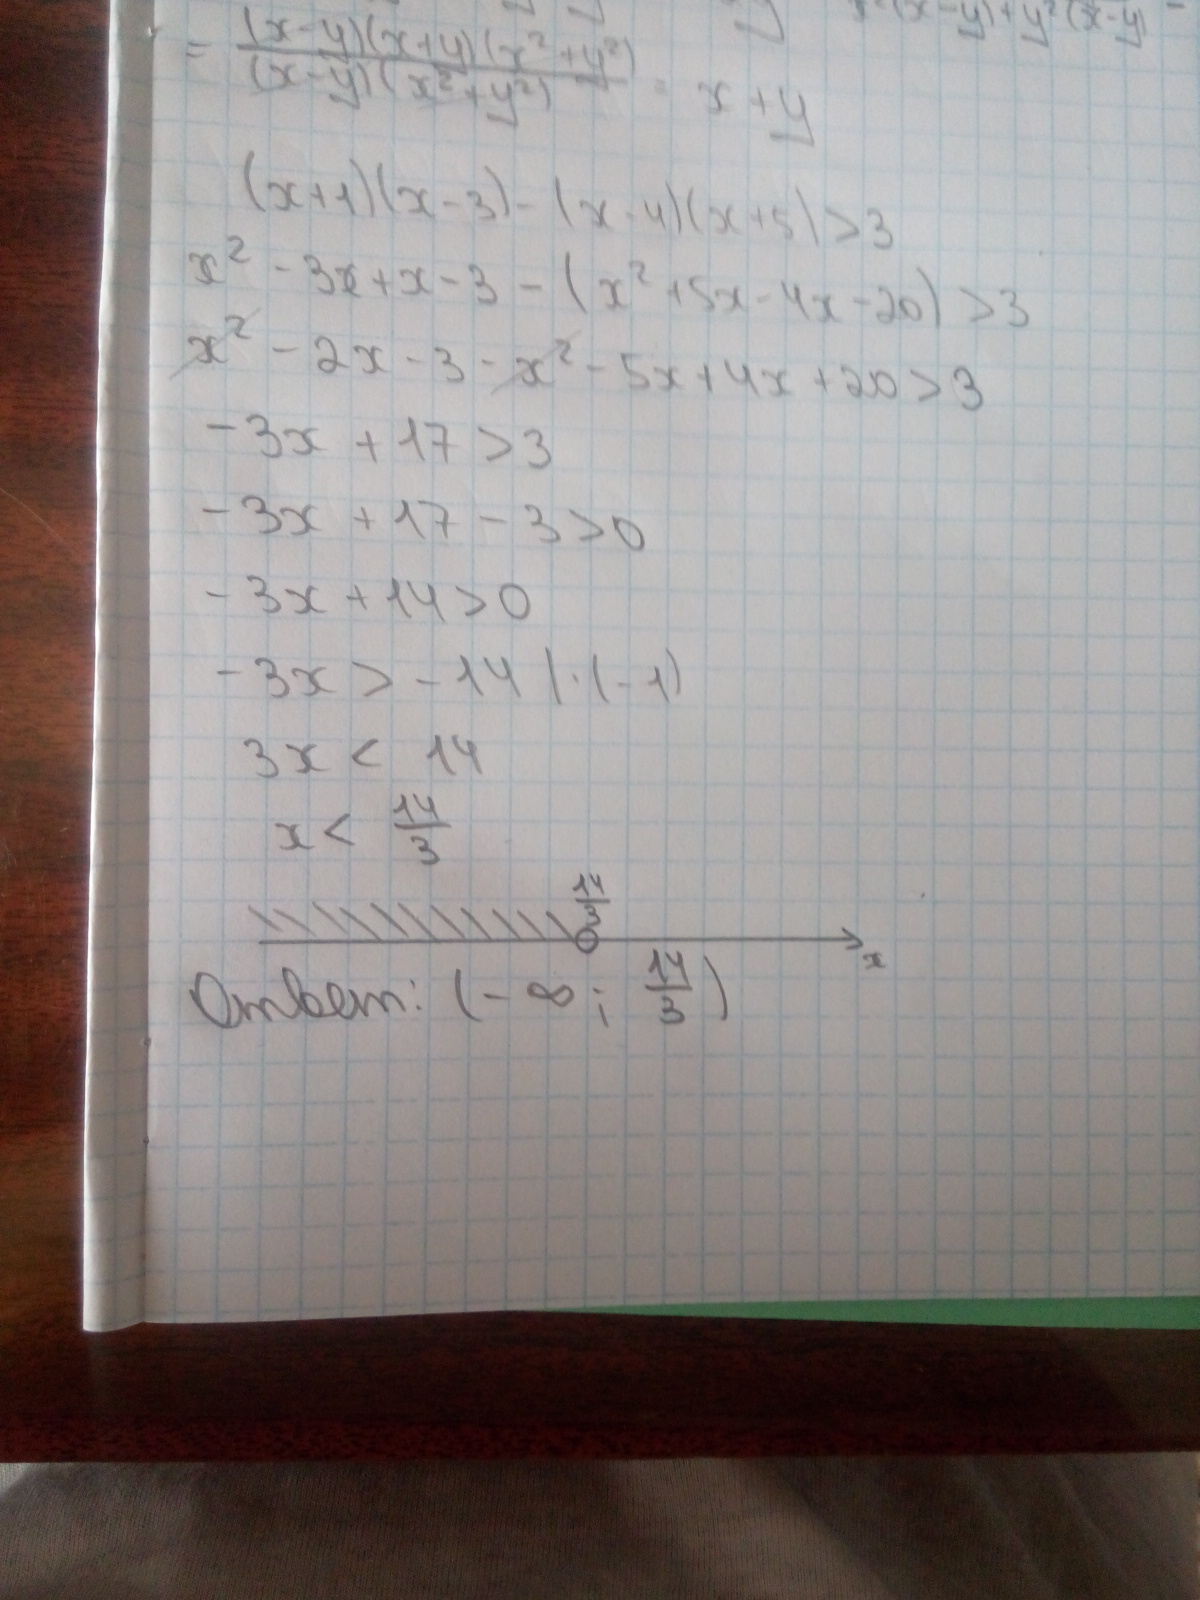 x²(x-y)+y²(x-y)
= (x-y)(x+y)(x²+y²) / (x-y)(x²+y²) = x+y
(x+1)(x-3)-(x-4)(x+5)>3
x²-3x+x-3-(x²+5x-4x-20)>3
x²-2x-3-x²-5x+4x+20>3
-3x+17>3
-3x+17-3>0
-3x+14>0
-3x>-14 |·(-1)
3x<14
x<14/3
14/3
x
Ответ: (-∞; 14/3)